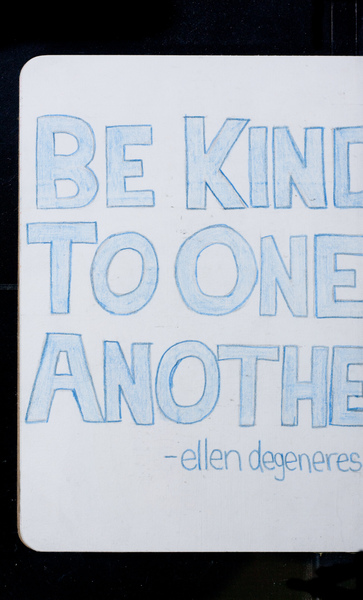 BE KIND
TO ONE
ANOTHE
-ellen degeneres